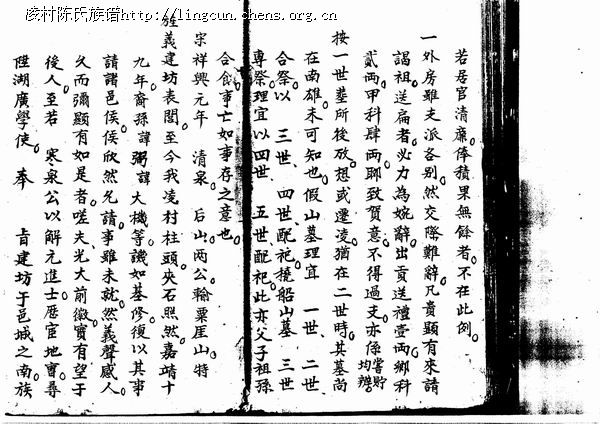 凌村陈氏族谱http://lingcun.chens.org.cn
若居官清廉俸積果無餘者不在此例
一外房雖支派各别然交際難辭凡貴顯有來請
謁祖送扁者必力為婉辭出貢送禮壹兩鄉科
貳兩甲科肆兩聊致賀意不得過支亦係嘗貯均辦
按一世墓所後攷想或遷凌猶在二世時其墓尚
在南雄未可知也假山墓理宜 一世 二世
合祭以 三世 四世配祀 船山墓 三世
專祭理宜以四世 五世配祀此亦父子祖孫
合食事亡如事存之意也
宋祥興元年 清泉 后山兩公輸粟厓山特
旌義建坊表閭至今我凌村柱頭夾石照然嘉靖十
九年裔孫諱弼諱 大機等議如基修復以其事
請諸邑侯侯欣然允請事雖未就然義聲感人
久而彌顯有如是者嗟夫光大前徽實有望于
後人至若 寒泉公以解元進士歷宦地會尋
陞湖廣學使 奉 旨建坊于邑城之南族